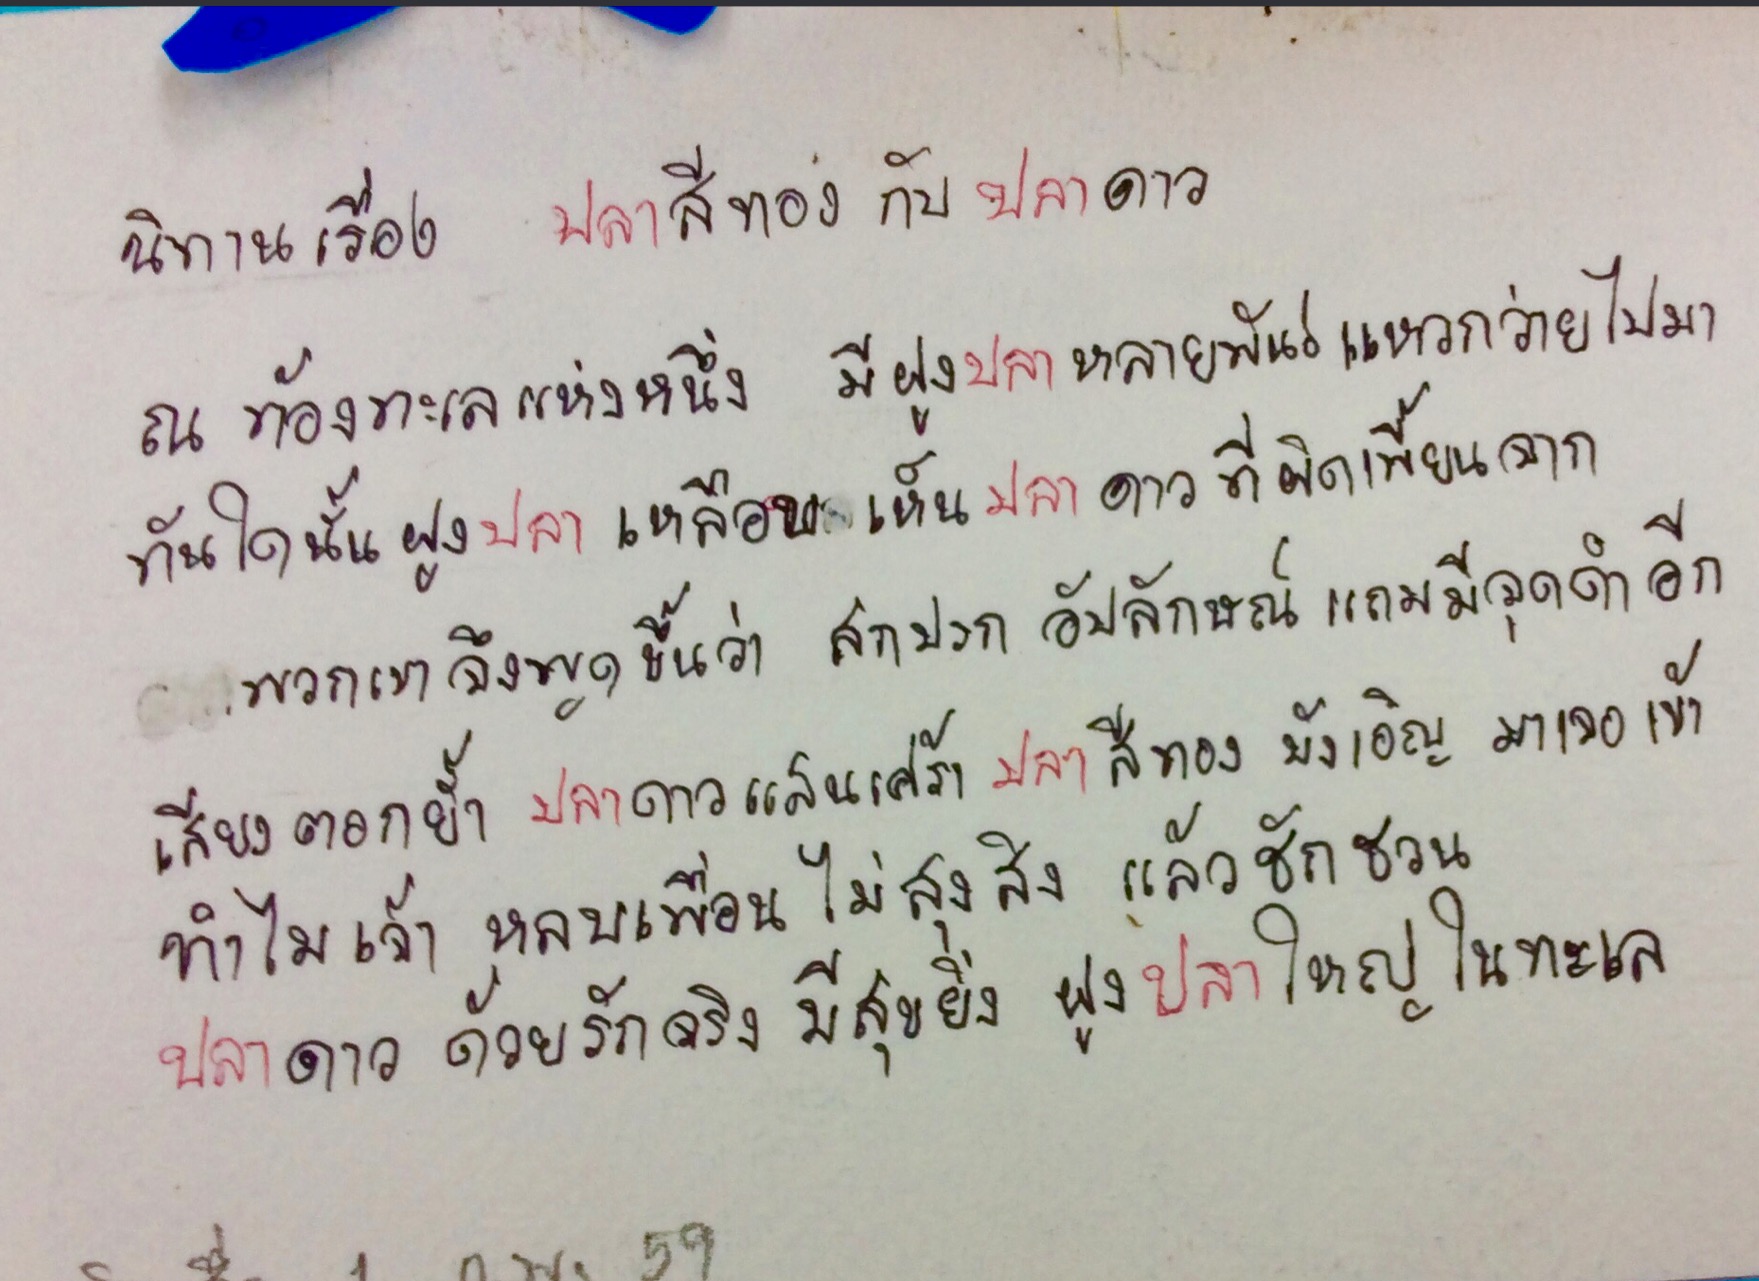 นิทานเรื่อง ปลาสีทอง กับ ปลาดาว
ณ ท้องทะเลแห่งหนึ่ง มีฝูงปลาหลายพันธุ์แหวกว่ายไปมา
ทันใดนั้น ฝูงปลา เหลือบ เห็น ปลา ดาว ที่ผิดเพี้ยนจาก
พวกเขา จึงพูดขึ้นว่า สกปรก อัปลักษณ์ แถมมีจุดดำอีก
เสียงตอกย้ำ ปลาดาวแสนเศร้า ปลาสีทอง บังเอิญ มาเจอเข้า
ทำไมเจ้า หลบเพื่อน ไม่สุงสิง แล้วชักชวน
ปลาดาว ด้วยรักจริง มีสุขยิ่ง ฝูงปลาใหญ่ในทะเล
59